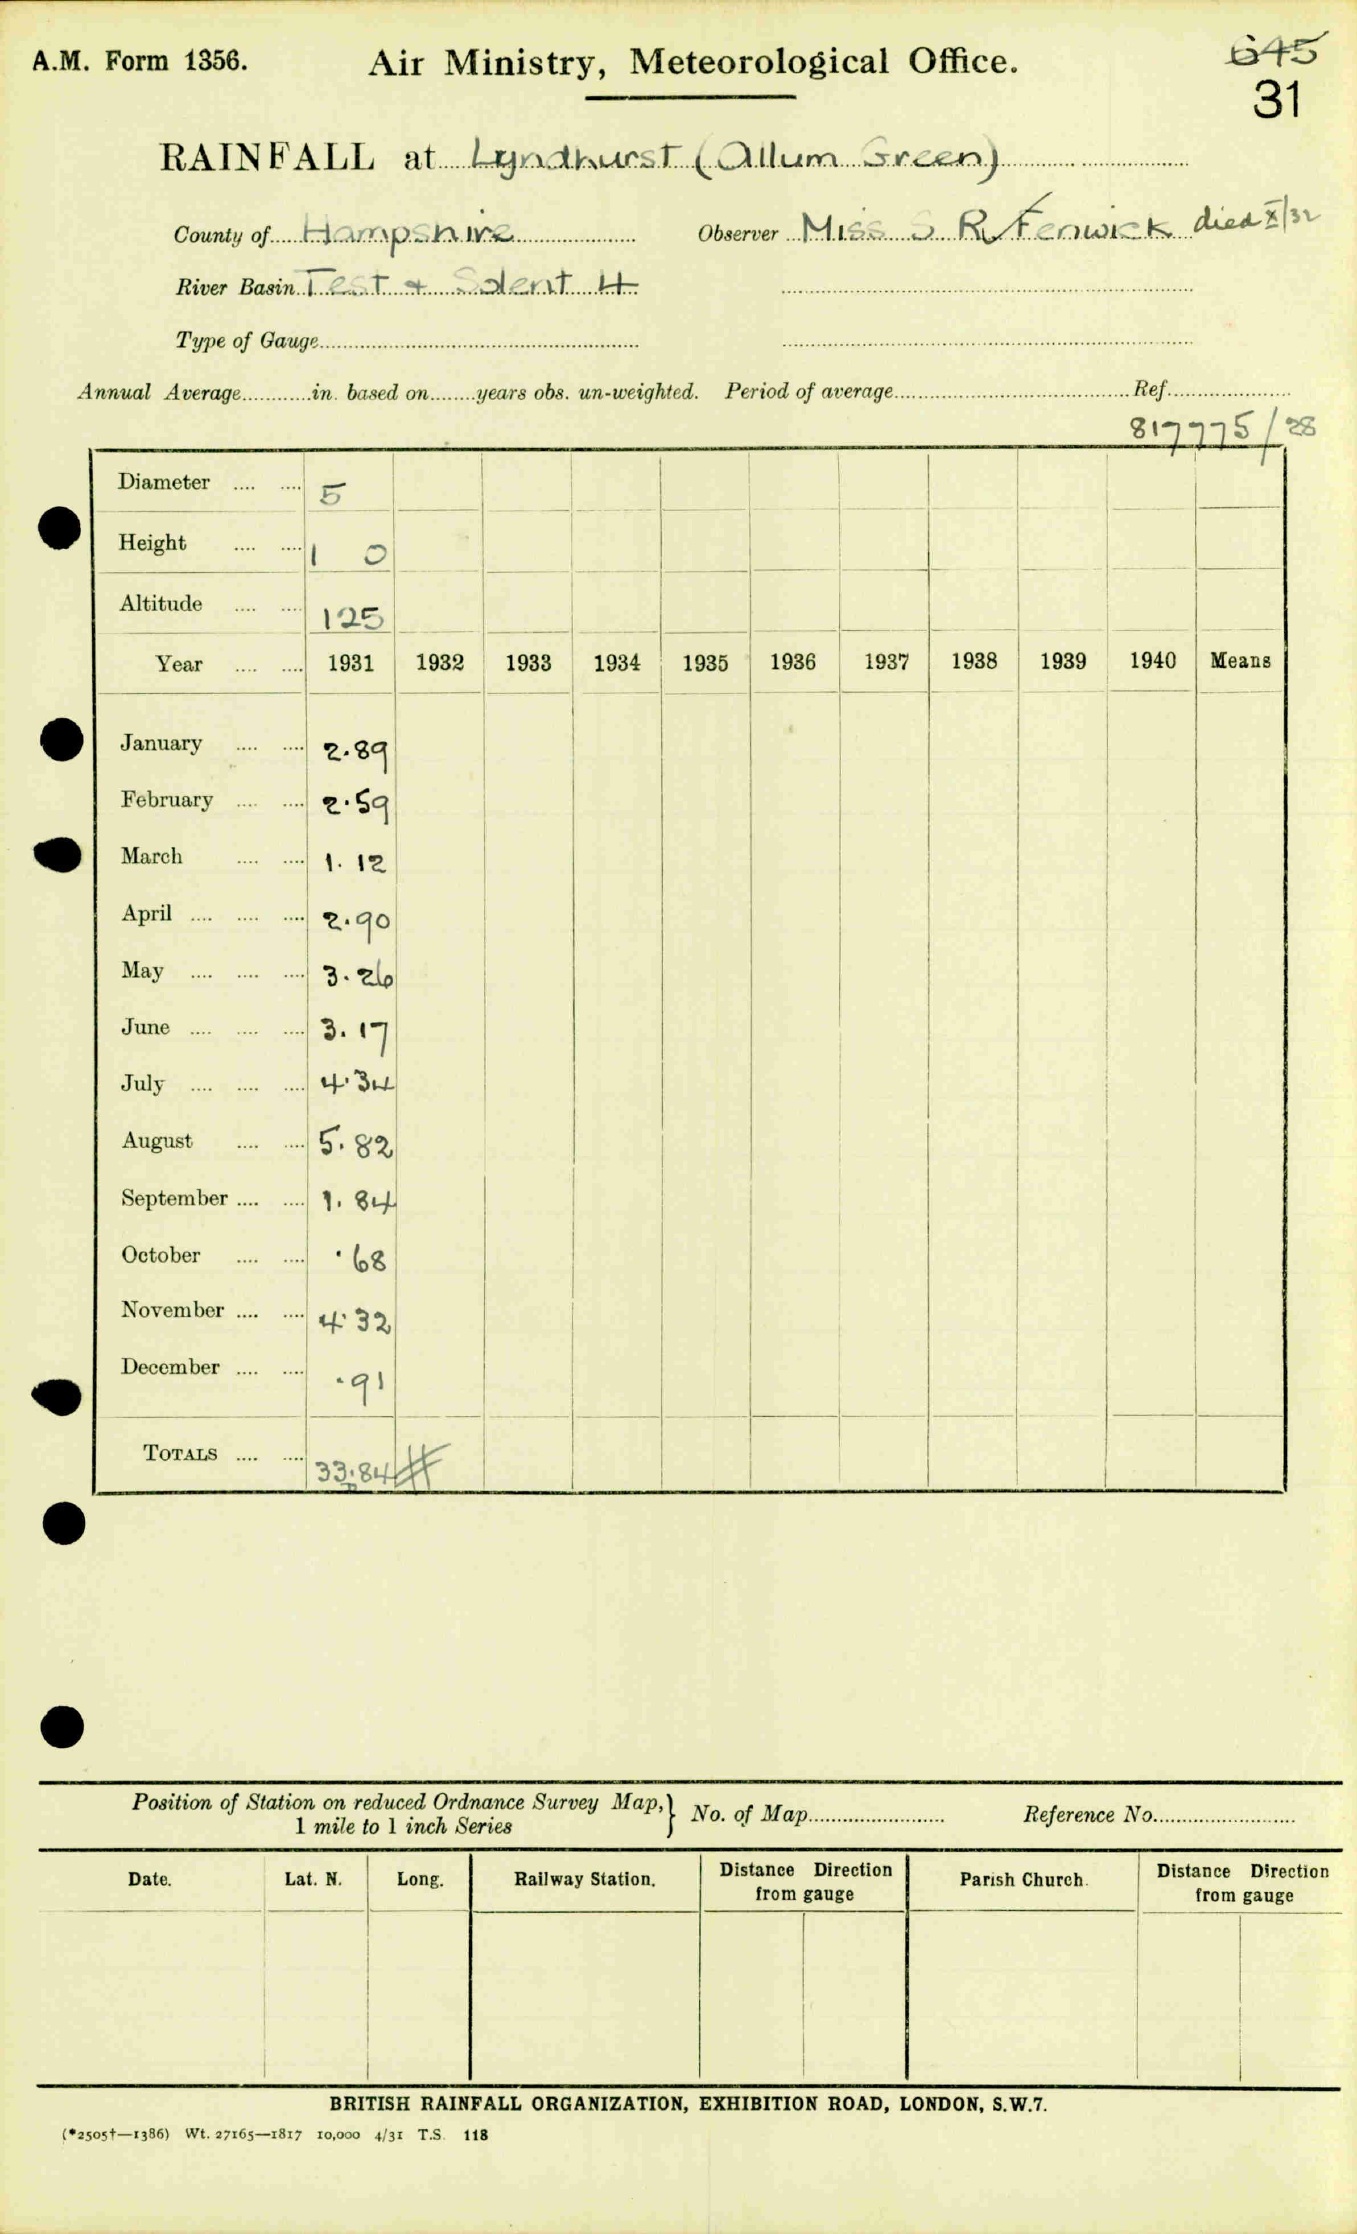 A.M. Form 1356.
Air Ministry, Meteorological Office.
645
31
RAINFALL at Lyndhurst (Allum Green)
County of Hampshire
Observer Miss S R Fenwick died X/32
River Basin Test + Solent 4
Type of Gauge
Annual Average............in. based on........years obs. un-weighted. Period of average........Ref........
817775/28
Diameter .... .... 5
Height .... .... 1 0
Altitude .... .... 125
Year .... .... 1931 1932 1933 1934 1935 1936 1937 1938 1939 1940 Means
January .... .... 2.89
February .... .... 2.59
March .... .... 1.12
April .... .... .... 2.90
May .... .... .... 3.26
June .... .... .... 3.17
July .... .... .... 4.34
August .... .... 5.82
September .... .... 1.84
October .... .... .68
November .... .... 4.32
December .... .... .91
TOTALS .... .... 33.84
Position of Station on reduced Ordnance Survey Map,} No. of Map........ Reference No........
1 mile to 1 inch Series
Date. Lat. N. Long. Railway Station. Distance Direction Parish Church. Distance Direction
from gauge from gauge
BRITISH RAINFALL ORGANIZATION, EXHIBITION ROAD, LONDON, S.W.7.
(*2505†—1386) Wt. 27165—1817 10,000 4/31 T.S. 118